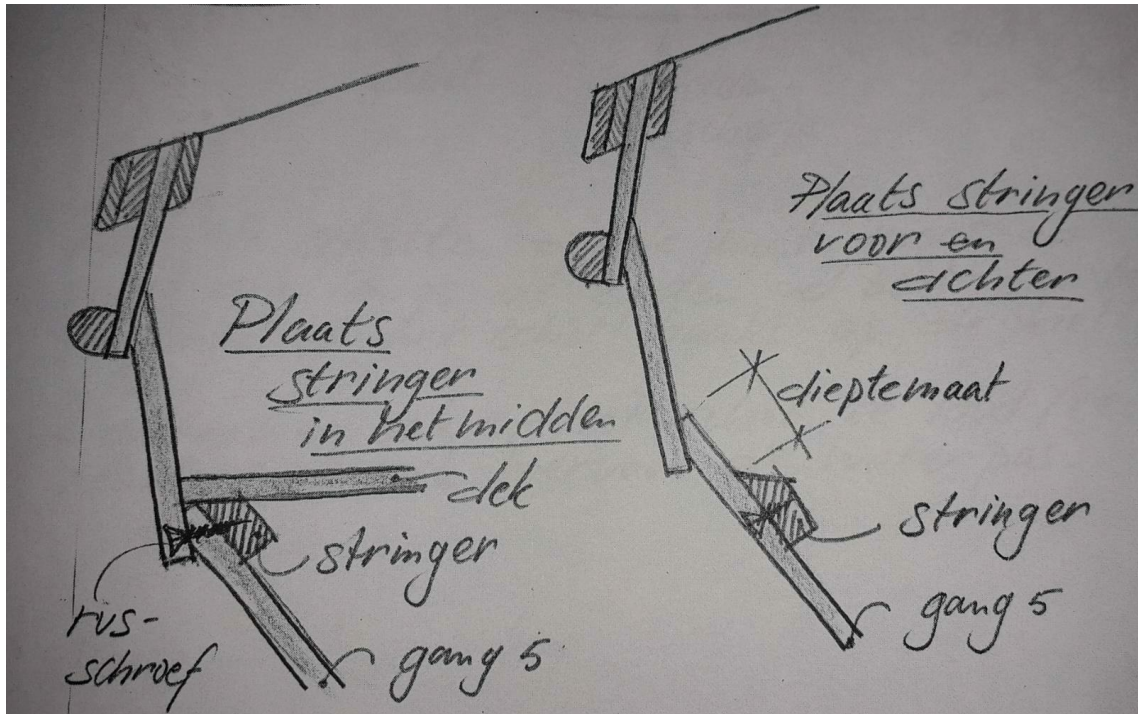 Plaats
stringer
in het midden
dek
stringer
rvs-
schroef
gang 5
Plaats stringer
voor en
achter
dieptemaat
stringer
gang 5